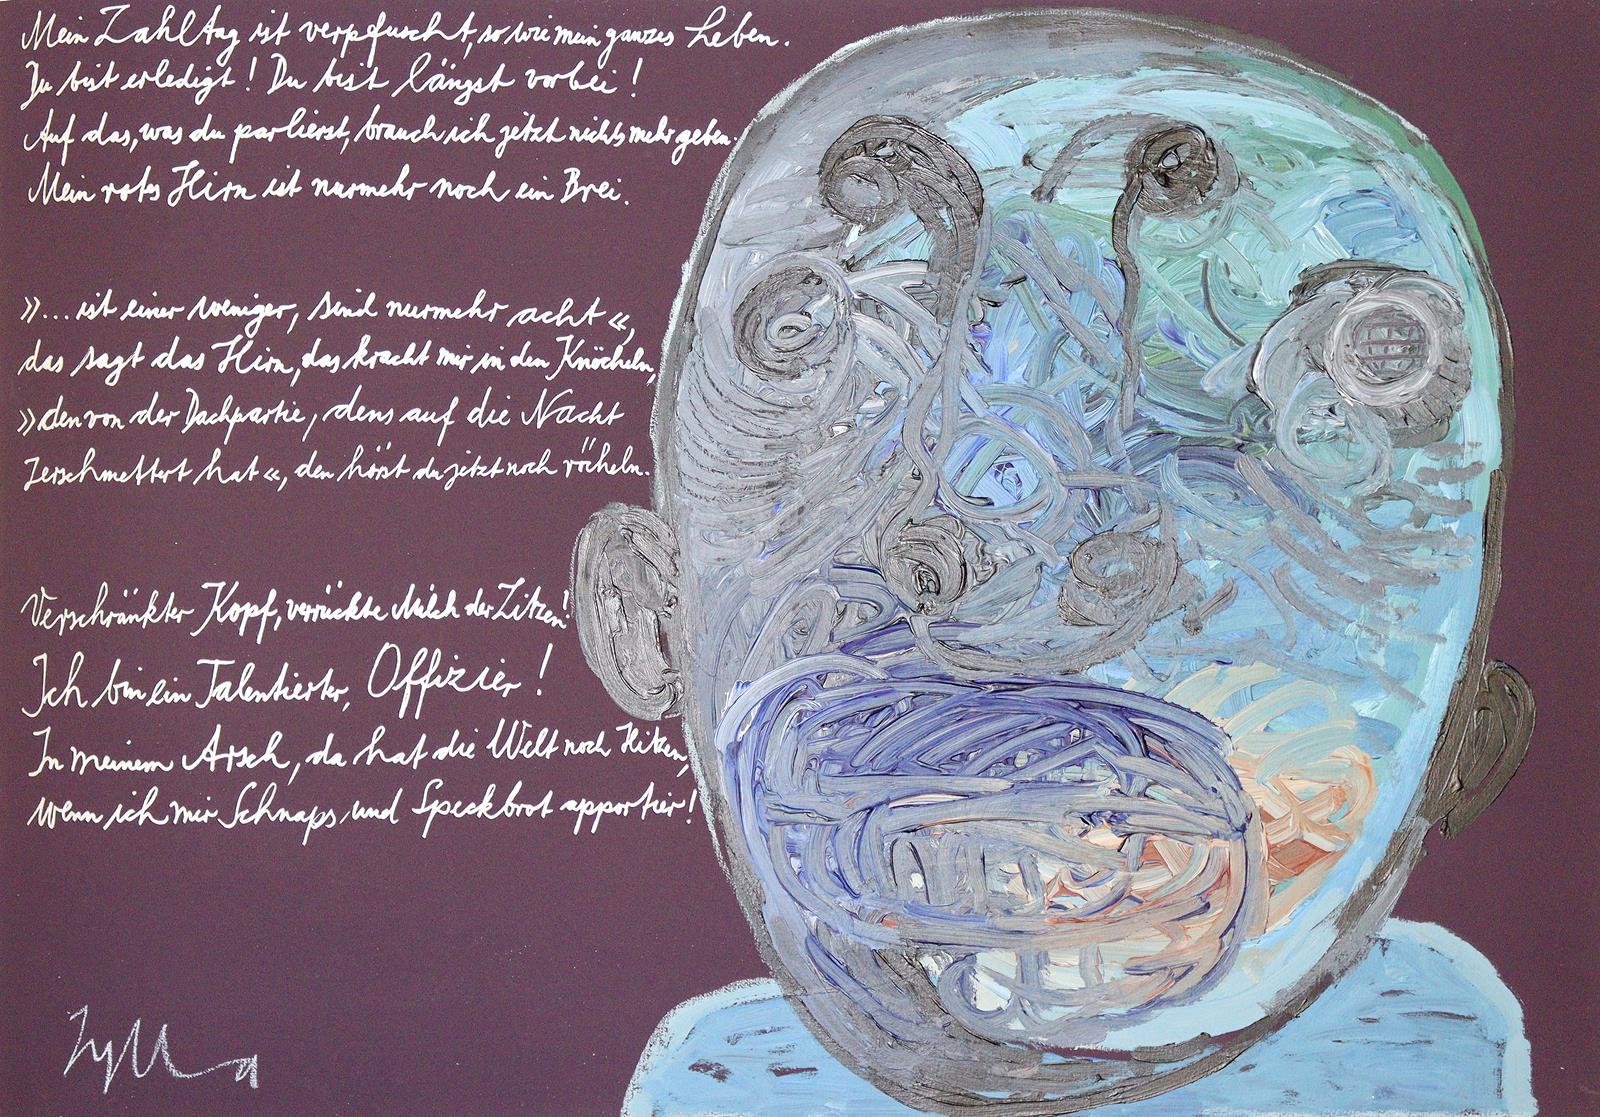 Mein Zahltag ist verpfuscht, so wie mein ganzes Leben.
Du bist erledigt! Du bist längst vorbei!
Auf das, was du parlierst, brauch ich jetzt nichts mehr geben.
Mein rotes Hirn ist nurmehr noch ein Brei.
»... ist einer weniger, sind nurmehr acht«,
das sagt das Hirn, das kracht mir in den Knöcheln,
»den von der Dachpartie, dens auf die Nacht
zerschmettert hat«, den hörst du jetzt noch röcheln.
Verschränkter Kopf, verrückte Milch der Zitzen!
Ich bin ein Talentierter, Offizier!
In meinem Arsch, da hat die Welt noch Hitzen,
wenn ich mir Schnaps und Speckbrot apportier!
Zylla